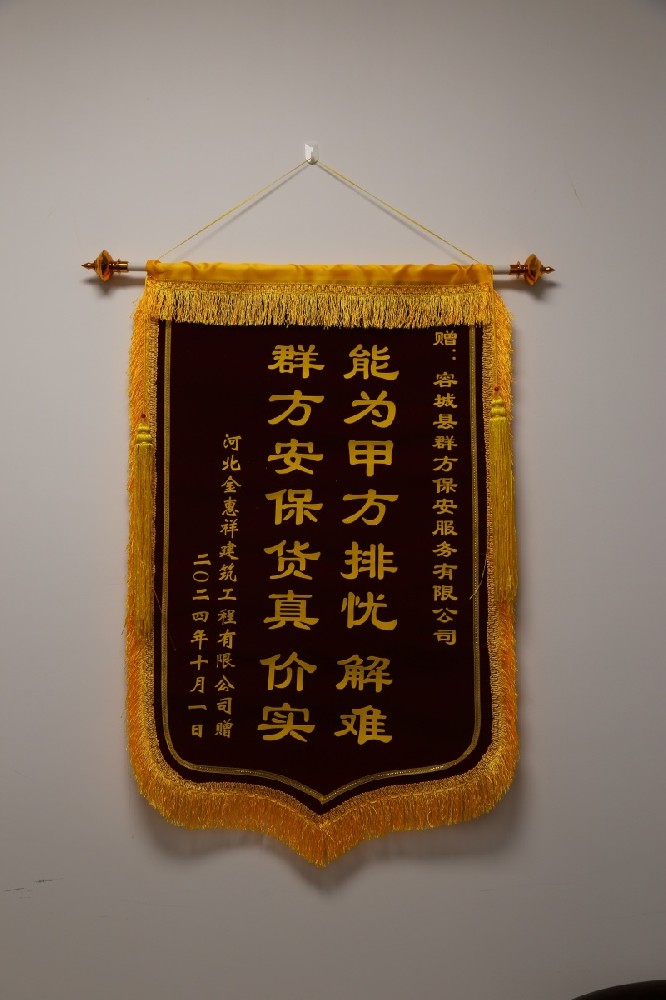 赠：容城县群方保安服务有限公司
能为甲方排忧解难
群方安保货真价实
河北金惠祥建筑工程有限公司赠
二〇二四年十月一日